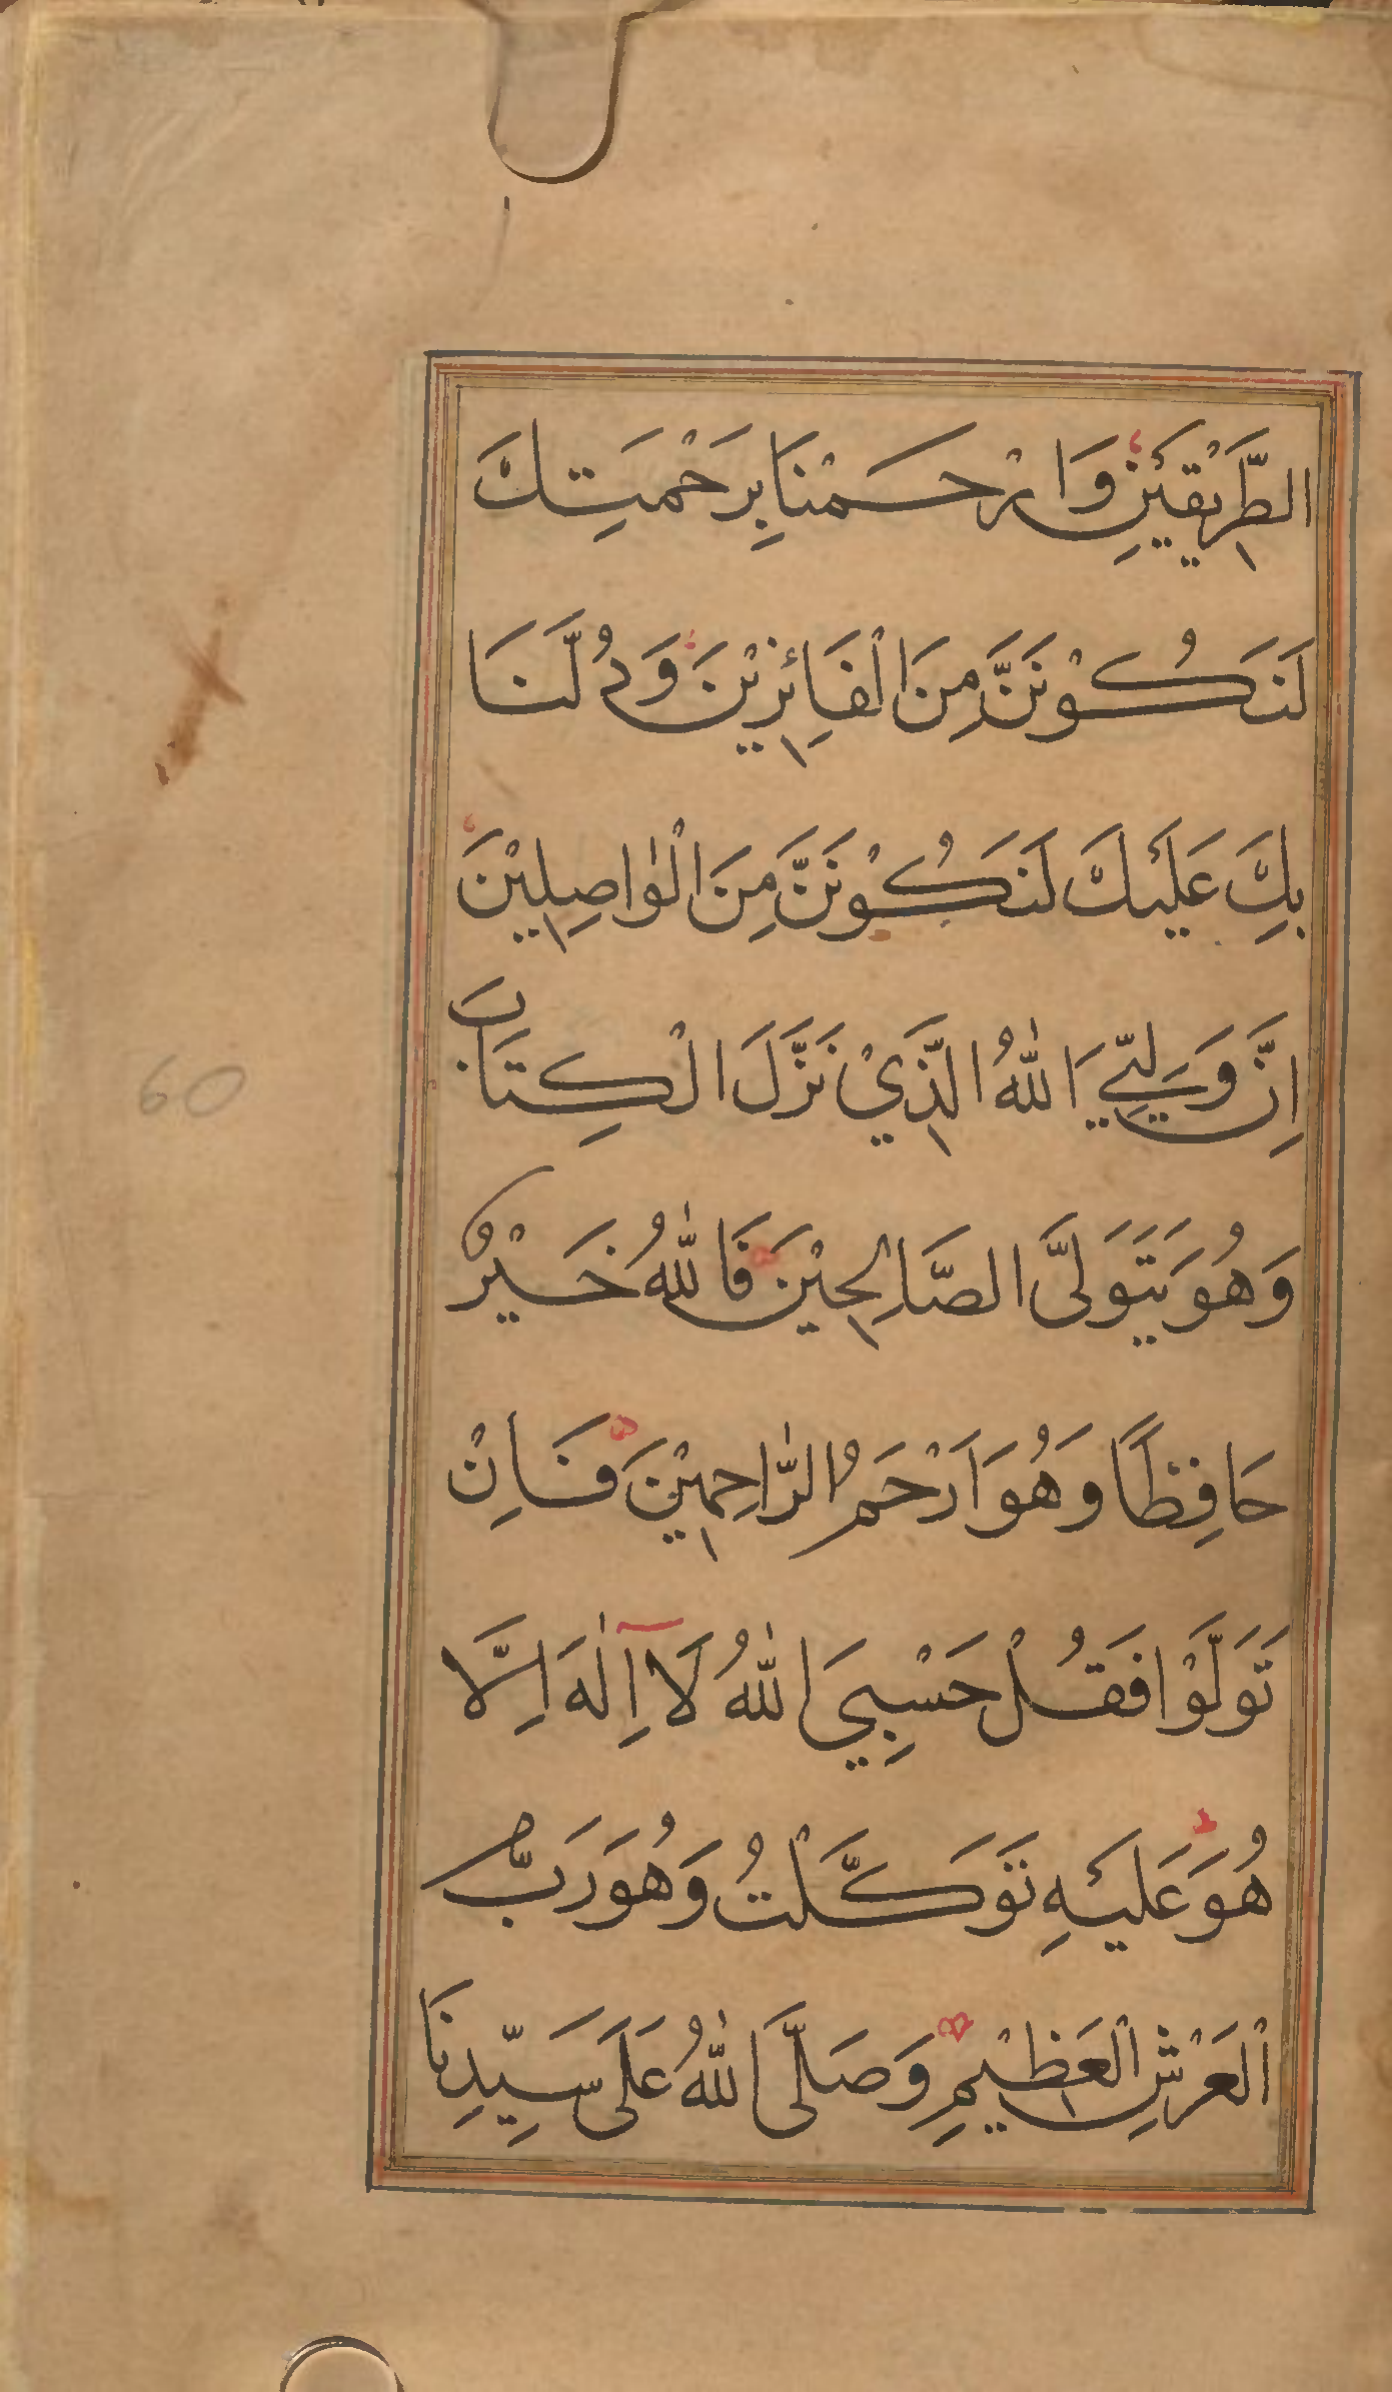 الطَّرِيْقَيْنِ وَارْحَمْنَا بِرَحْمَتِكَ
لَنَكُوْنَنَّ مِنَ الْفَائِزِيْنَ وَدُلَّنَا
بِكَ عَلَيْكَ لَنَكُوْنَنَّ مِنَ الْوٰاصِلِيْنَ
اِنَّ وَلِيِّيَ اللّٰهُ الَّذِيْ نَزَّلَ الْكِتَابَ
وَهُوَ يَتَوَلَّى الصَّالِحِيْنَ فَاللّٰهُ خَيْرٌ
حَافِظًا وَهُوَ اَرْحَمُ الرّٰاحِمِيْنَ فَاِنْ
تَوَلَّوْا فَقُلْ حَسْبِيَ اللّٰهُ لَآ اِلٰهَ اِلَّا
هُوَ عَلَيْهِ تَوَكَّلْتُ وَهُوَ رَبُّ
الْعَرْشِ الْعَظِيْمِ وَصَلَّى اللّٰهُ عَلَى سَيِّدِنَا
60